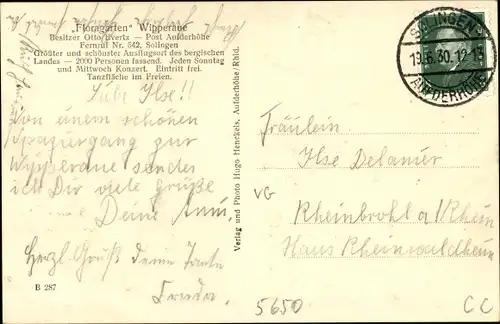 "Floragarten" Wipperaue
Besitzer Otto Evertz — Post Aufderhöhe
Fernruf Nr. 642, Solingen
Größter und schönster Ausflugsort des bergischen
Landes — 2000 Personen fassend. Jeden Sonntag
und Mittwoch Konzert. Eintritt frei.
Tanzfläche im Freien.
Ilse!!
Von einem schönen
Spaziergang zur
Wipperaue sendet
ich Dir viele Grüße
Deine Anni.
Herzl. Gruß deine Tante
Frieda.
B 287
Verlag und Photo Hugo Henckels, Aufderhöhe/Rhld.
SOLINGEN-
19.6.30.12-13
AUFDERHÖHE
Fräulein
Ilse Delamer
VG
Rheinbrohl a/Rhein
Haus Rheinwaldheim
5650
CC